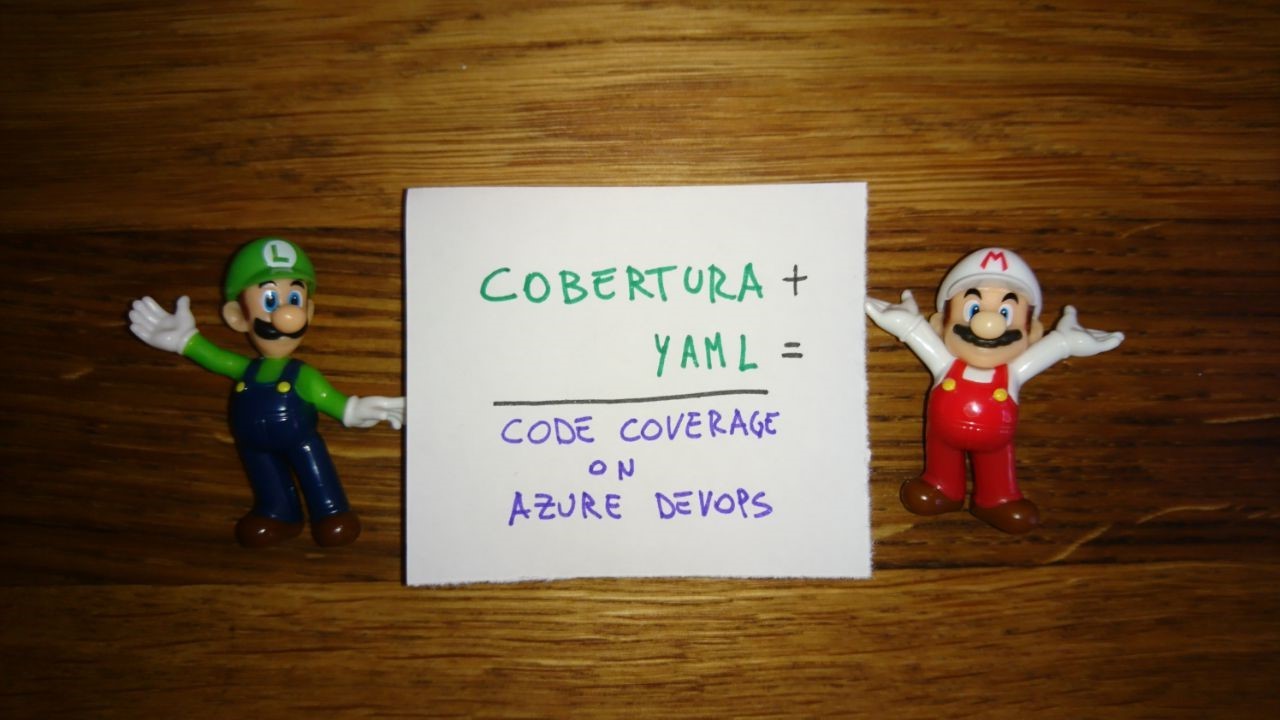 L
M
COBERTURA +
YAML =
CODE COVERAGE
ON
AZURE DEVOPS